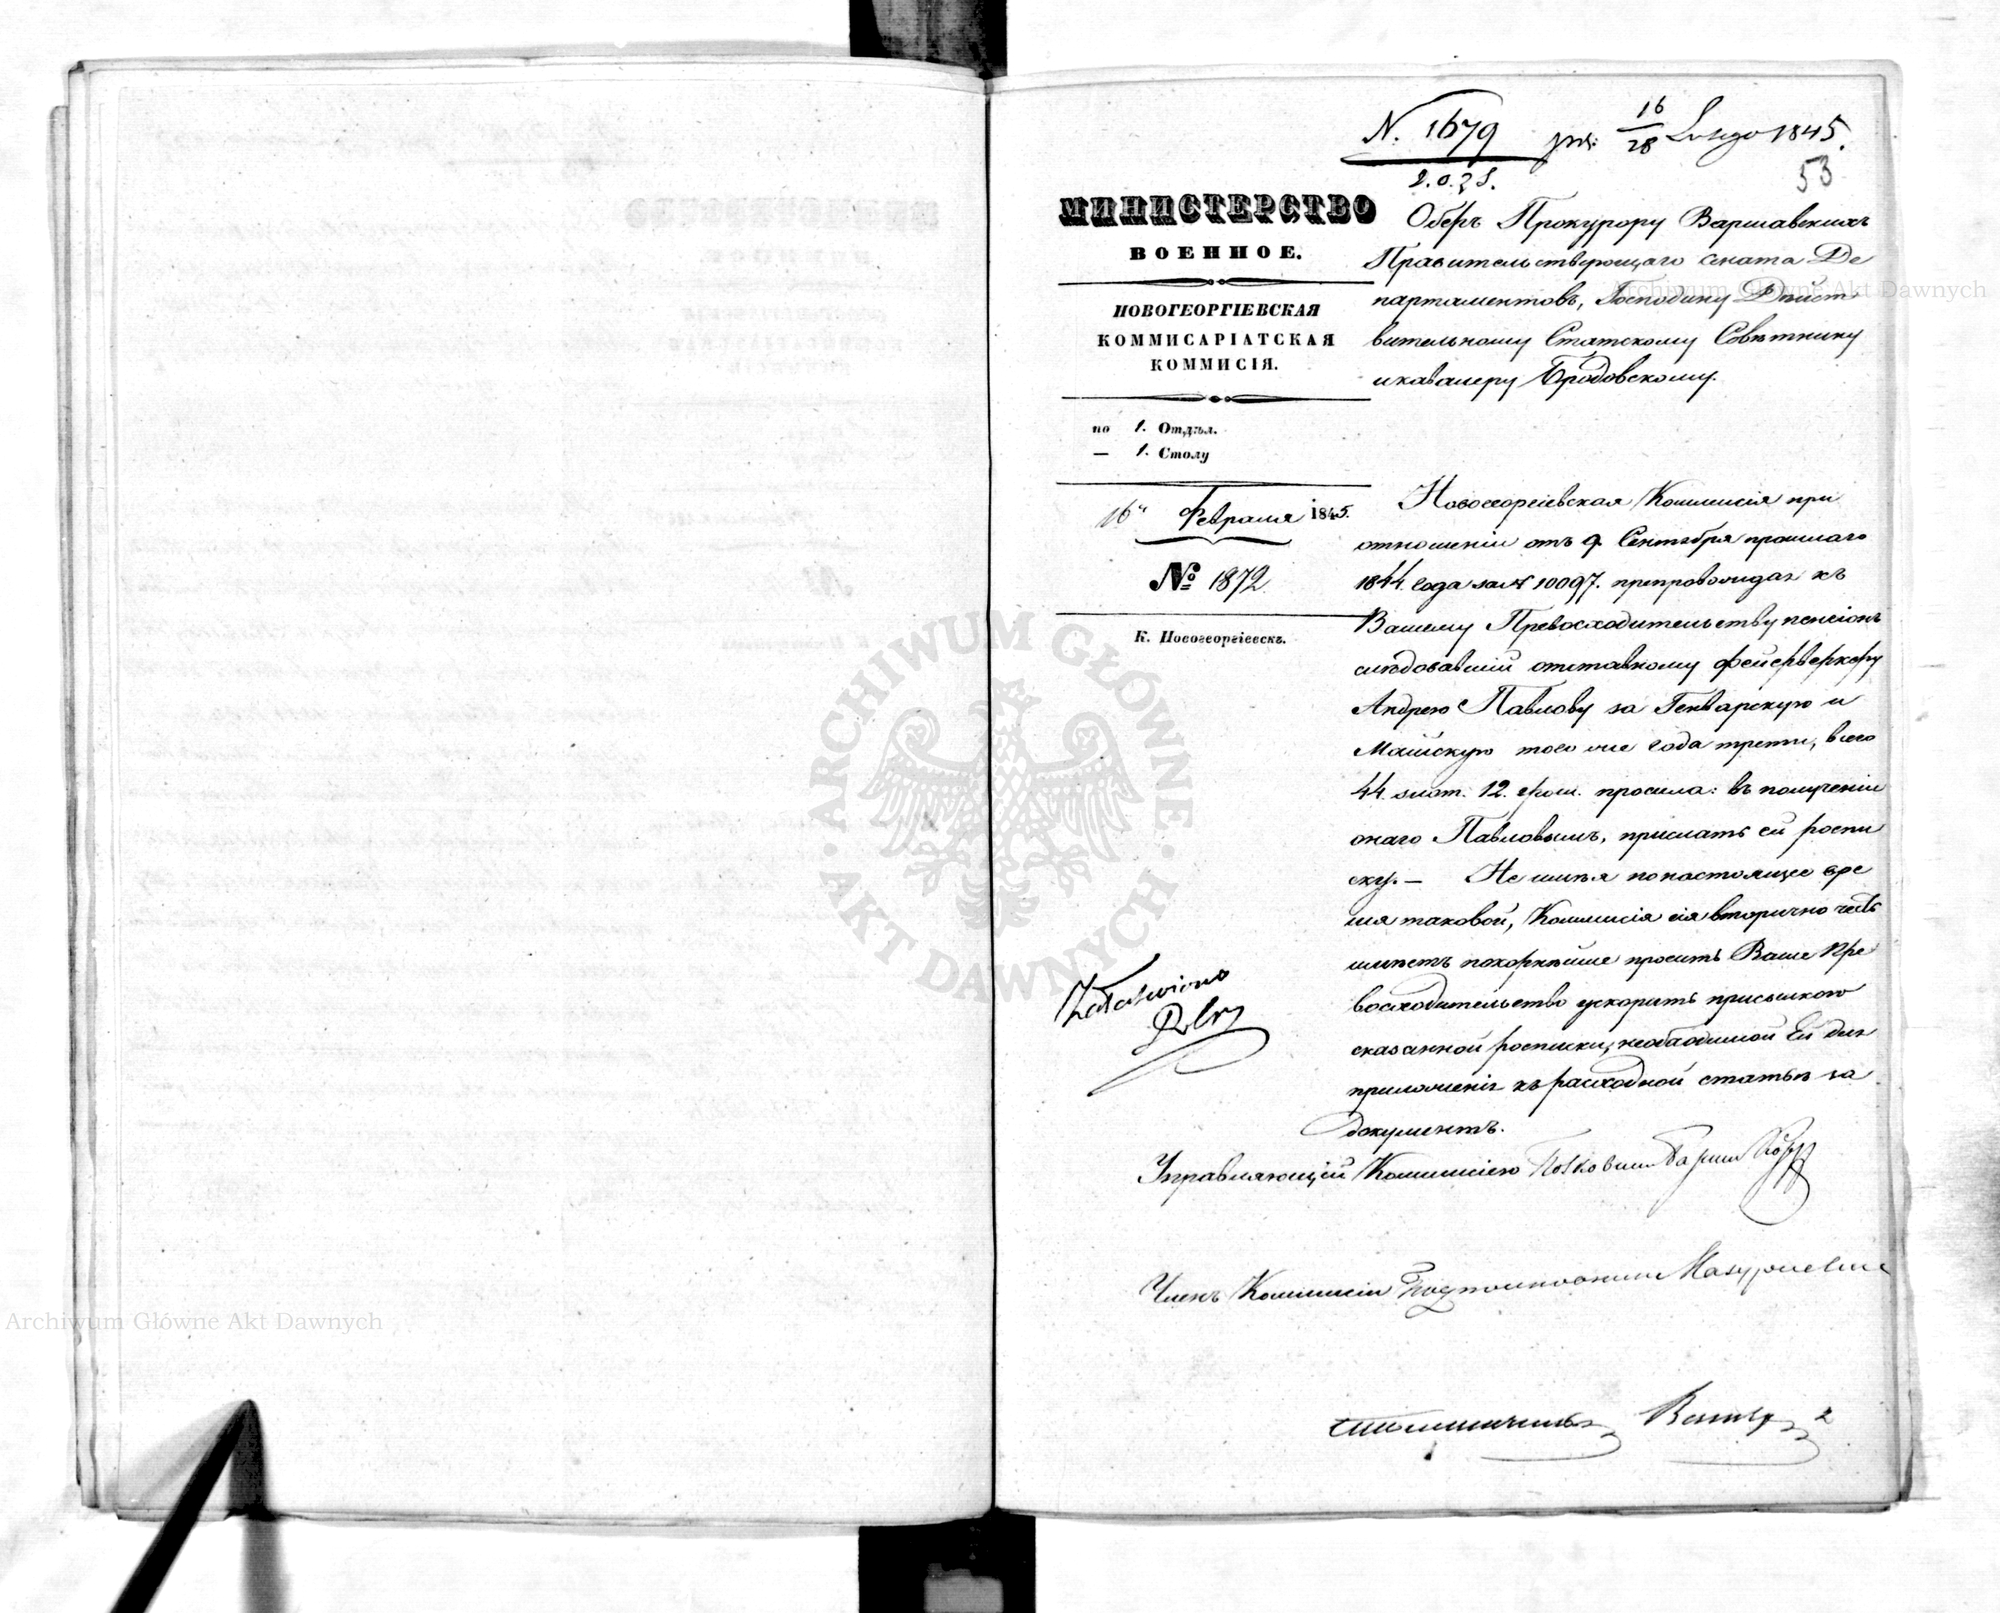 N. 1679 16/28 Lutego 1845.
53
МИНИСТЕРСТВО
ВОЕННОЕ.
НОВОГЕОРГІЕВСКАЯ
КОММИСАРІАТСКАЯ
КОММИСІЯ.
по 1. Отдѣл.
— 1. Столу
16" Февраля 1845.
№ 1872
К. Новогеоргіевскъ.
Оберъ Прокурору Варшавскихъ
Правительствующаго Сената Де
партаментовъ, Господину Дѣйст
вительному Статскому Совѣтнику
и кавалеру Бродовскому.
Новогеоргіевская Коммисія при
отношеніи отъ 9 Сентября прошлаго
1844 года за № 10097. препровождая къ
Вашему Превосходительству пенсіонъ
слѣдовавшій отставному фейерверкеру
Андрею Павлову за Генварскую и
Майскую того же года трети, всего
44. злот. 12. грош. просила: въ полученіи
онаго Павловымъ, прислать ей роспи
ску. — Не имѣя по настоящее вре
мя таковой, Коммисія сія вторично честь
имѣетъ покорнѣйше просить Ваше Пре
восходительство ускорить присылкою
сказанной росписки, необходимой Ей для
приложенія къ расходной статьѣ за
документъ.
Załatwiono
Управляющій Коммисіею Полковникъ Баронъ
Членъ Коммисіи Подполковникъ
Столоначальникъ
ARCHIWUM GŁÓWNE · AKT DAWNYCH ·
Archiwum Główne Akt Dawnych
Archiwum Główne Akt Dawnych